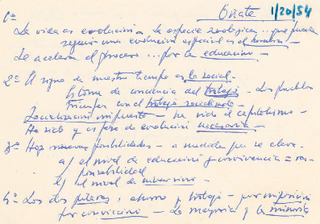 Oñate 1/20/54
1º=
La vida es evolución a la especie zoológica... por puede
seguir una evolución especial es el hombre -
Se acelera el proceso... por la educación. -
2º= El signo de nuestro tiempo es lo social. -
Es toma de conciencia del trabajo. - Los pueblos
Triunfan con el trabajo
impuesto - ha sido el capitalismo -
Ha sido y es fase de evolución necesaria -
3º= Hay nuevas posibilidades - a medida que se eleve
a) el nivel de educación y convivencia =
b) el nivel de
4º= Los dos pilares, ahorro y trabajo - por imposición
por convicción - La mayoría y la minoría